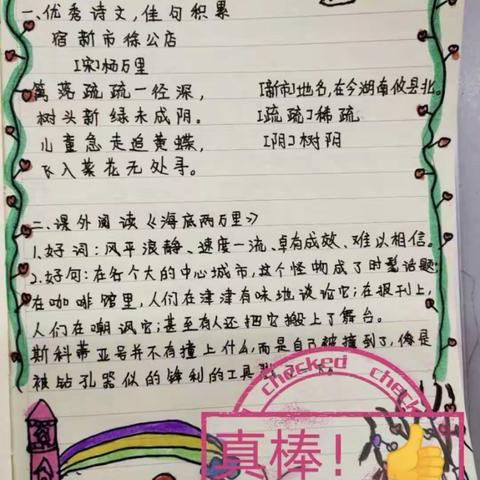 一、优秀诗文,佳句积累
宿新市徐公店
[宋]杨万里
篱落疏疏一径深,
[新市]地名,在今湖南攸县北。
树头新绿未成阴。
[疏疏]稀疏
儿童急走追黄蝶,
[阴]树阴
飞入菜花无处寻。
二、课外阅读《海底两万里》
1.好词:风平浪静、速度一流、卓有成效、难以相信。
2.好句:在各个大的中心城市,这个怪物成了时髦话题;
在咖啡馆里,人们在津津有味地谈论它;在报刊上,
人们在嘲讽它;甚至有人还把它搬上了舞台。
斯科蒂亚号并不有撞上什么,而是自己被撞到了,像是
被钻孔器似的锋利的工具
checked
check
真棒!